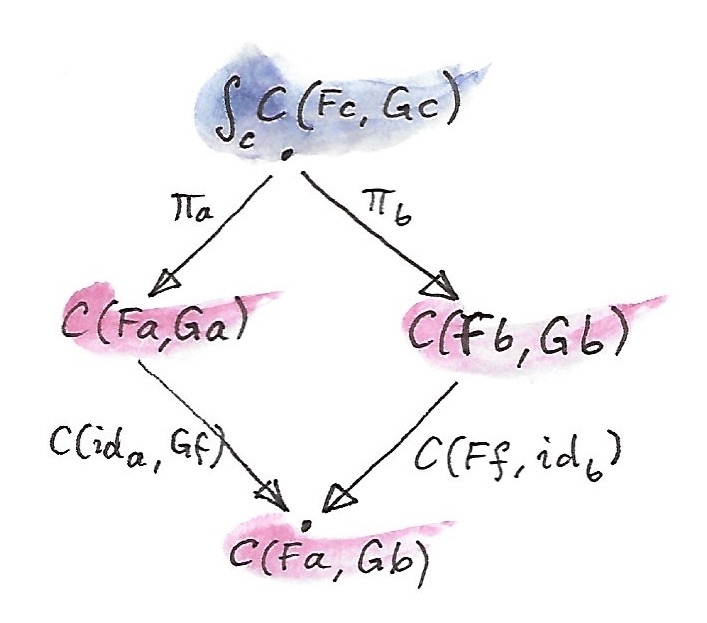 ∫c C(Fc, Gc)
πa πb
C(Fa,Ga) C(Fb, Gb)
C(ida, Gf) C(Ff, idb)
C(Fa, Gb)